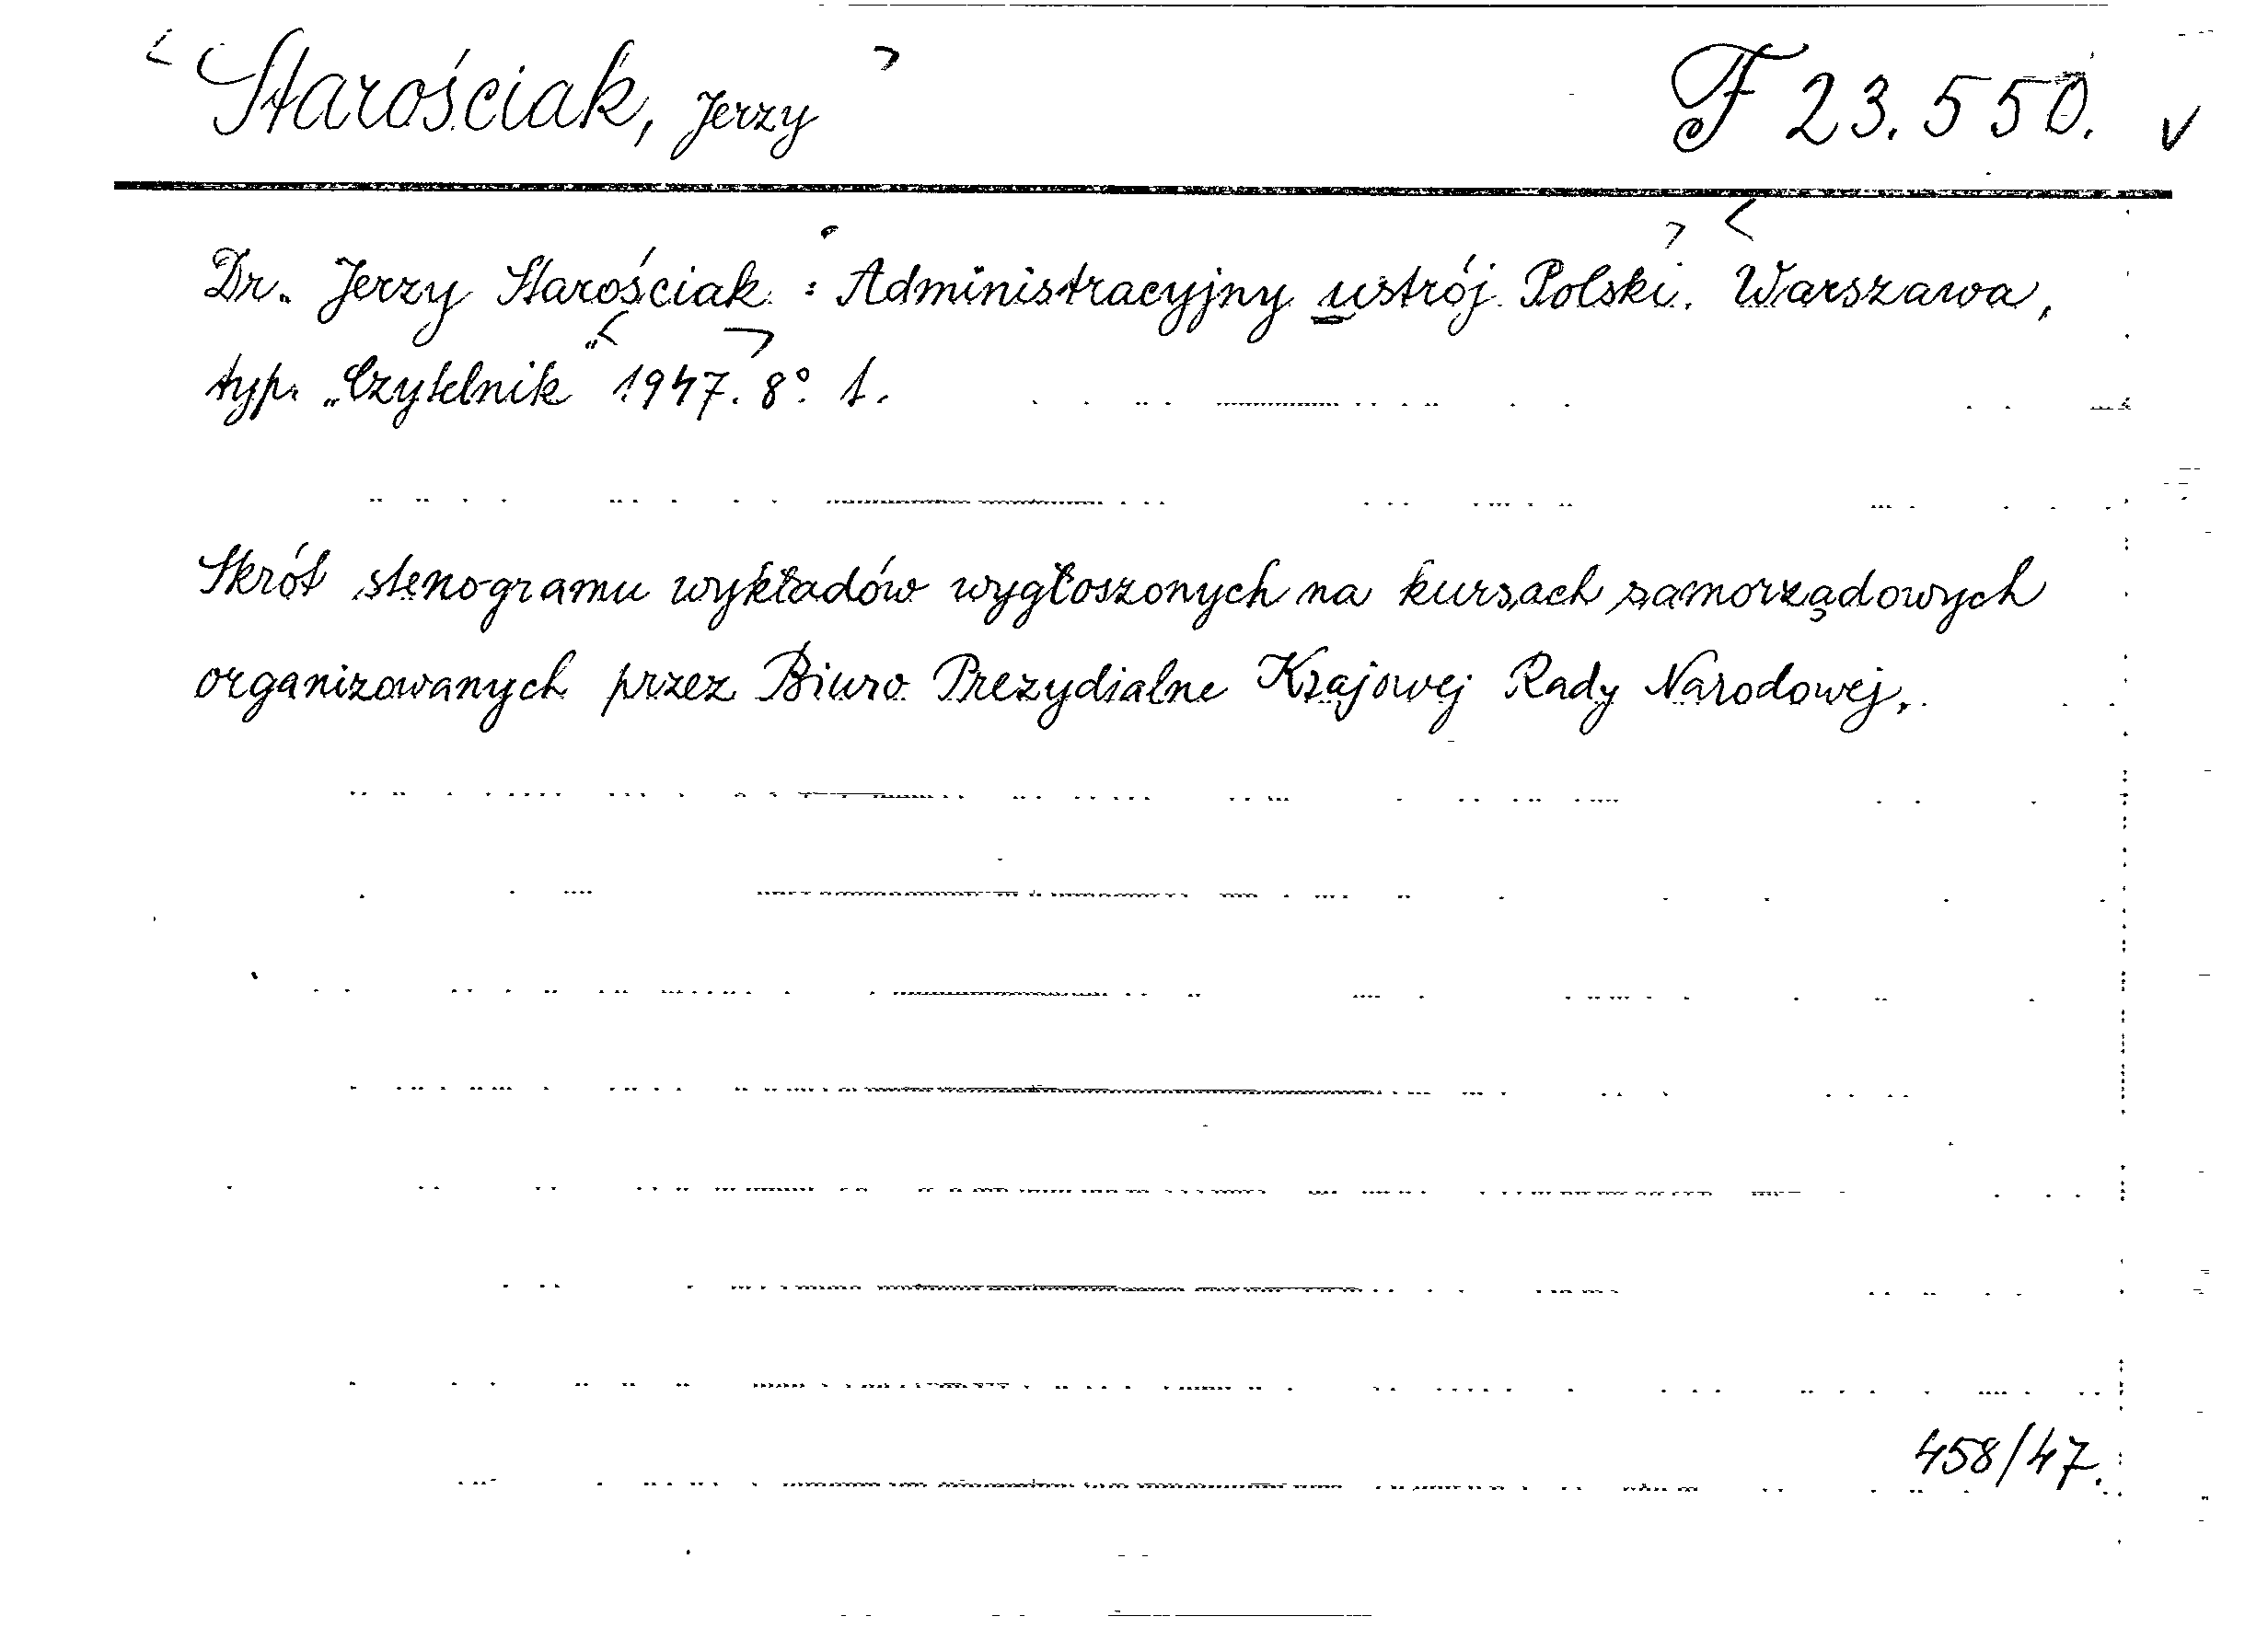 Starościak, Jerzy F 23.550. v
Dr. Jerzy Starościak : Administracyjny ustrój Polski. Warszawa,
typ. „Czytelnik" 1947. 8° t.
Skrót stenogramu wykładów wygłoszonych na kursach samorządowych
organizowanych przez Biuro Prezydialne Krajowej Rady Narodowej.
458/47.